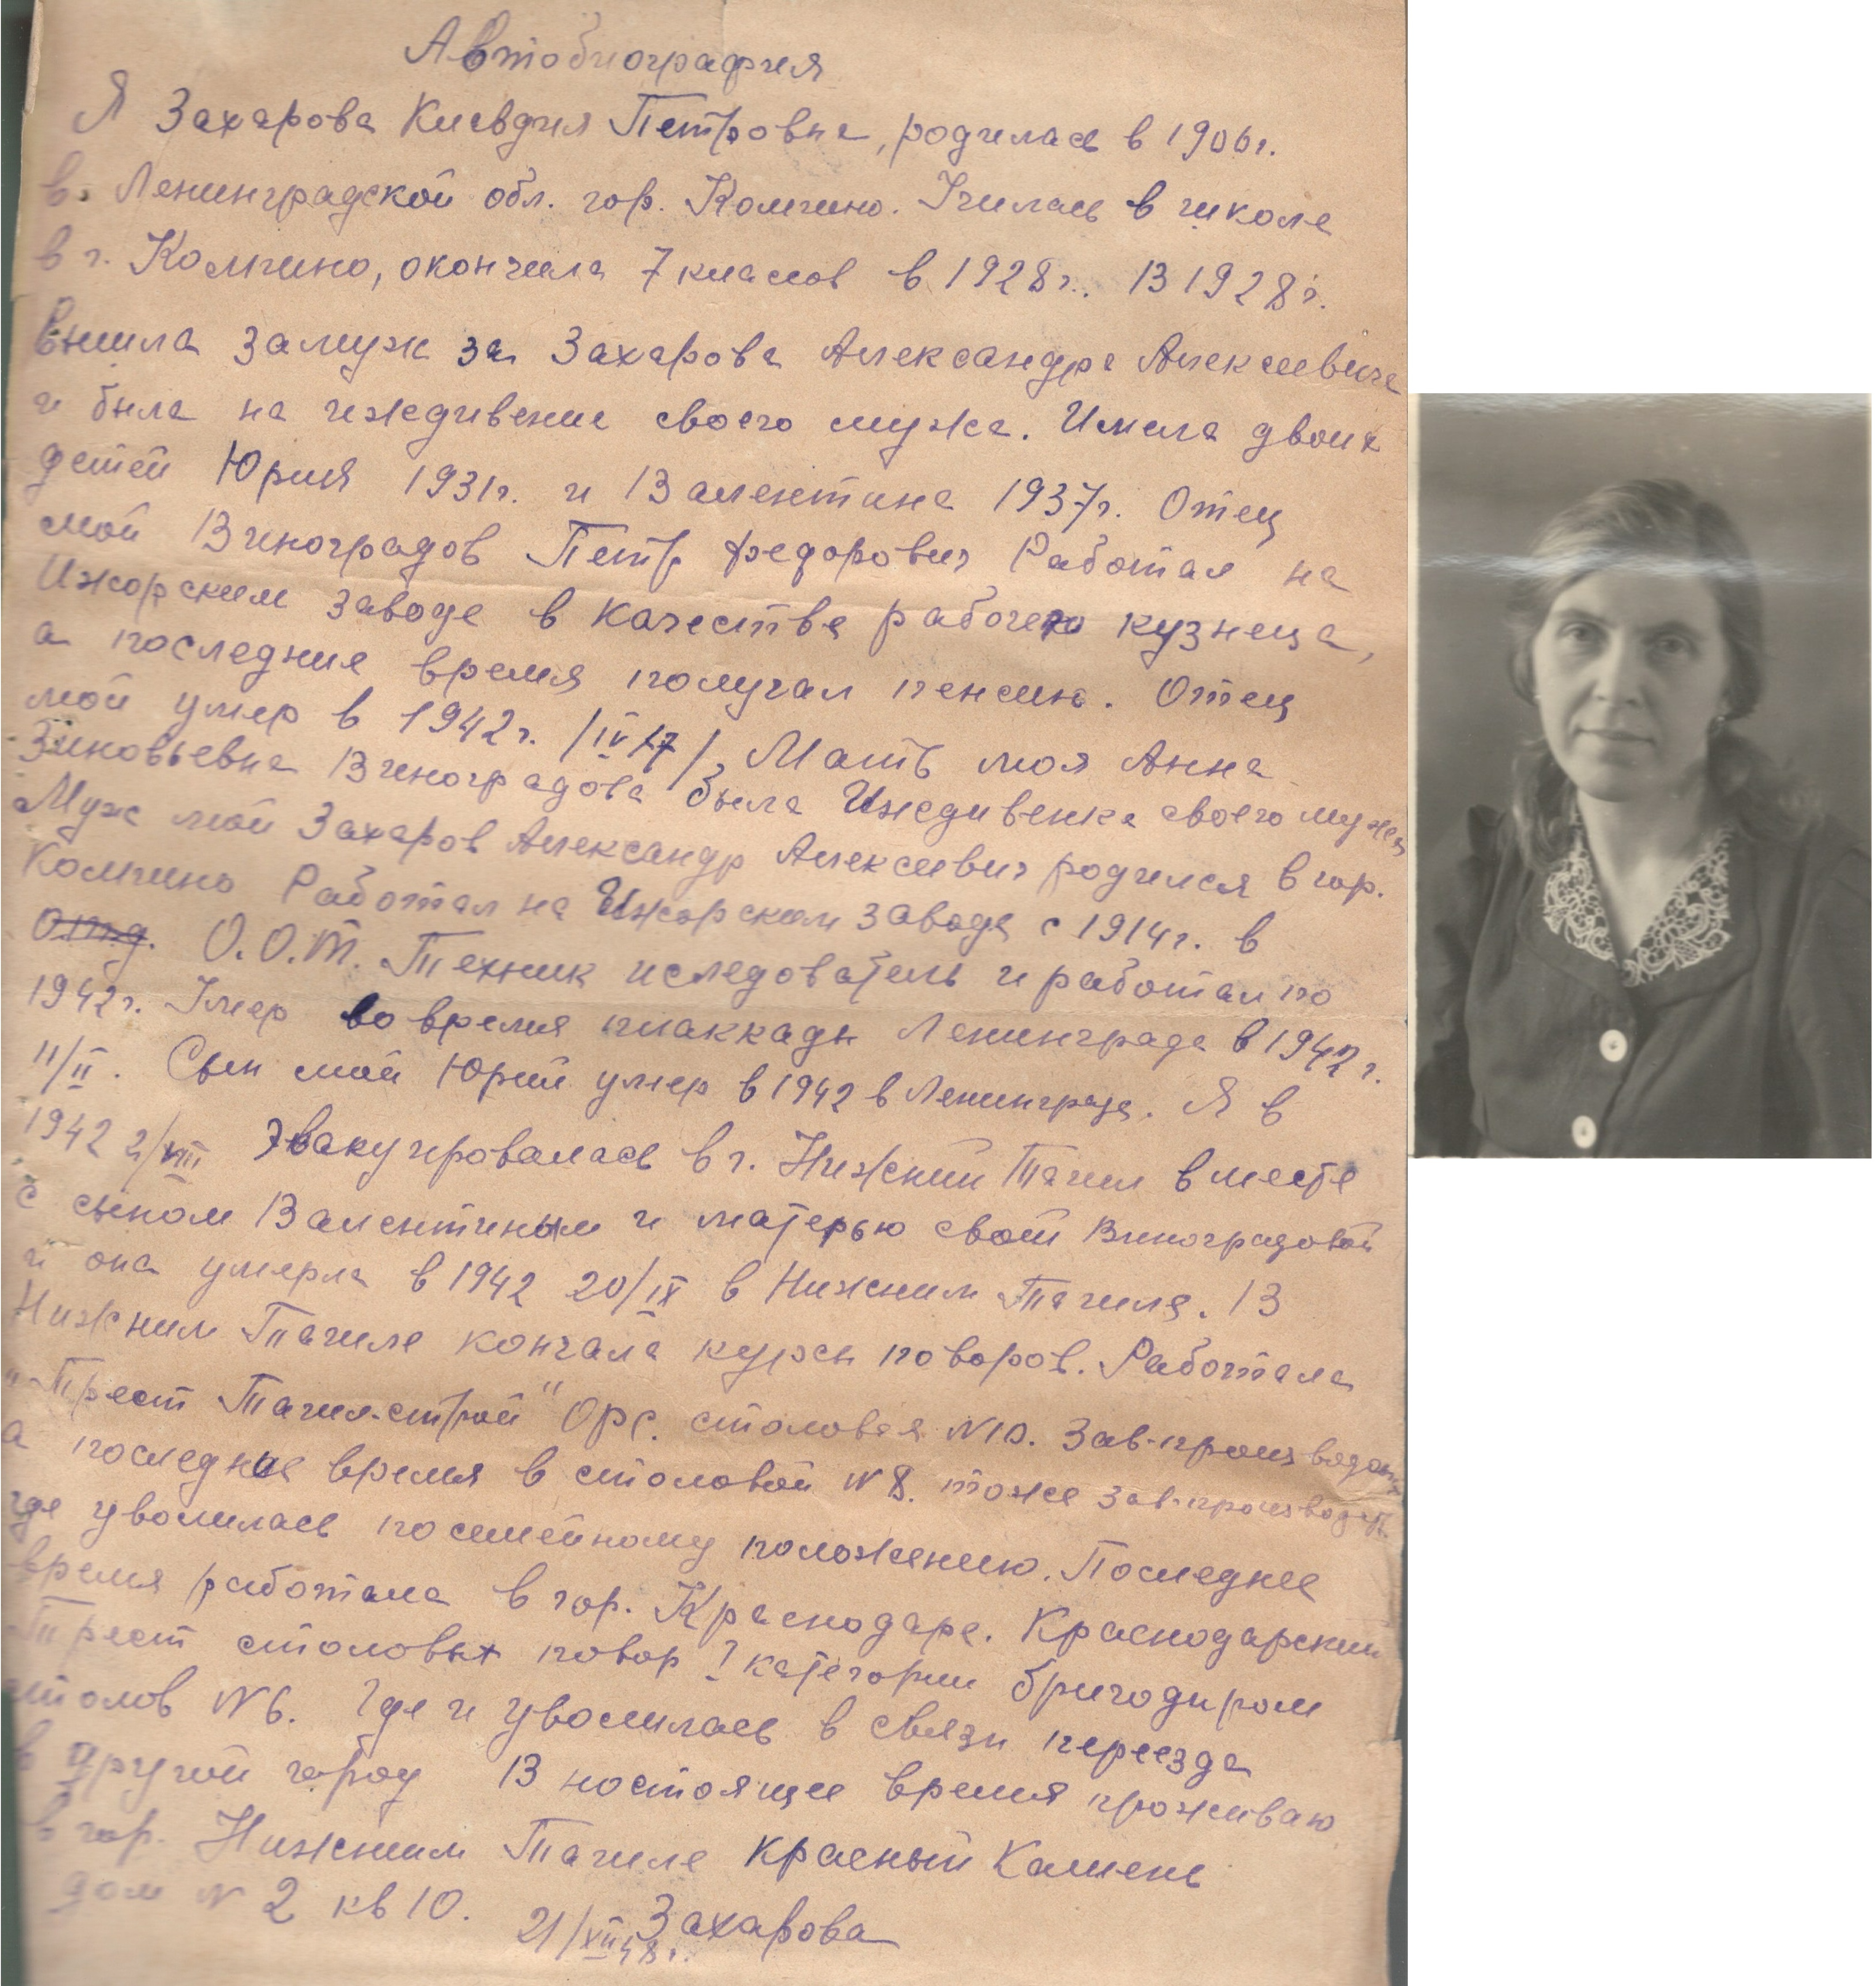 Автобиография
Я Захарова Клавдия Петровна, родилась в 1906г.
в. Ленинградской обл. гор. Колпино. Училась в школе
в г. Колпино, окончила 7 класов в 1928г. В 1928г.
вышла замуж за Захарова Александра Алексеевича
и была на иждивение своего мужа. Имела двоих
детей Юрия 1931г. и Валентина 1937г. Отец
мой Виноградов Петр Федорович Работал на
Ижорским заводе в качестве рабочего кузнеца,
а последние время получал пенсию. Отец
мой умер в 1942г. /IV 17/. Мать моя Анна
Зиновьевна Виноградова была Иждивенка своего мужа
Муж мой Захаров Александр Алексеевич родился в гор.
Колпино Работал на Ижорским заводе с 1914г. в
отд. О.О.Т. Техник иследователь и работал по
1942г. Умер во время плаккады Ленинграда в 1942г.
11/II. Сын мой Юрий умер в 1942 в Ленинграде. Я в
1942 2/VIII Эвакуировалась в г. Нижний Тагил вместе
с сыном Валентиным и матерью своей Виноградовой
и она умерла в 1942 20/IX в Нижним Тагиле. В
Нижним Тагиле кончала курсы поворов. Работала
"Трест Тагил-строй" Орс. столовая N10. Зав-производ
а последние время в столовой N 8. тоже Зав-производст.
где уволилась посемейному положению. Последнее
время работала в гор. Краснодаре. Краснодарский
Трест столовых повор I категории бригодиром
столов N 6. Где и уволилась в связи переезда
в другой город В ностоящее время проживаю
в гор. Нижним Тагиле Красный Камень
дом N 2 кв 10.
21/XII 48г. Захарова